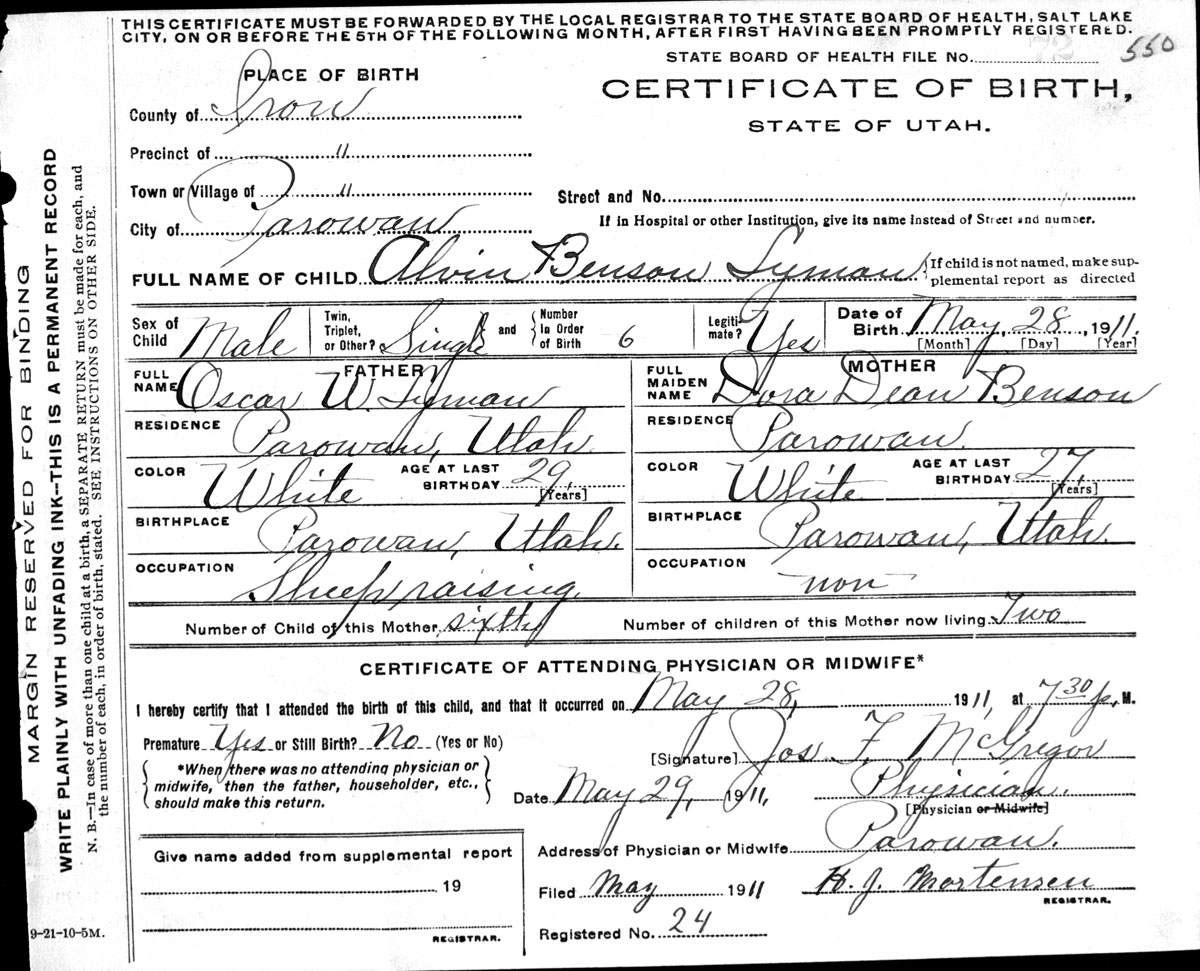 THIS CERTIFICATE MUST BE FORWARDED BY THE LOCAL REGISTRAR TO THE STATE BOARD OF HEALTH, SALT LAKE
CITY, ON OR BEFORE THE 5TH OF THE FOLLOWING MONTH, AFTER FIRST HAVING BEEN PROMPTLY REGISTERED.
STATE BOARD OF HEALTH FILE No. 72 550
PLACE OF BIRTH
CERTIFICATE OF BIRTH,
STATE OF UTAH.
County of Iron
Precinct of "
Town or Village of "
Street and No.
City of Parowan
If in Hospital or other Institution, give its name instead of Street and number.
FULL NAME OF CHILD Alvin Benson Lyman { If child is not named, make sup-
plemental report as directed
Sex of Child Male Twin, Triplet, or Other? Single and { Number In Order of Birth 6 Legiti- mate? Yes Date of Birth May, 28, 1911.
[Month] [Day] [Year]
FATHER
FULL NAME Oscar W. Lyman
RESIDENCE Parowan, Utah.
COLOR White AGE AT LAST BIRTHDAY 29, [Years]
BIRTHPLACE Parowan, Utah.
OCCUPATION Sheep raising.
MOTHER
FULL MAIDEN NAME Dora Dean Benson
RESIDENCE Parowan.
COLOR White AGE AT LAST BIRTHDAY 27, [Years]
BIRTHPLACE Parowan, Utah.
OCCUPATION non
Number of Child of this Mother, sixtty Number of children of this Mother now living. Two
CERTIFICATE OF ATTENDING PHYSICIAN OR MIDWIFE*
I hereby certify that I attended the birth of this child, and that it occurred on May 28, 1911, at 7 30 p. M.
Premature Yes or Still Birth? No (Yes or No)
[Signature] Jos F. McGregor
*When there was no attending physician or
midwife, then the father, householder, etc.,
should make this return.
Date May 29, 1911, Physician.
[Physician or Midwife]
Address of Physician or Midwife Parowan.
Give name added from supplemental report
19
REGISTRAR.
Filed May 1911 H. J. Mortensen
REGISTRAR.
Registered No. 24
9-21-10-5M.
MARGIN RESERVED FOR BINDING
WRITE PLAINLY WITH UNFADING INK--THIS IS A PERMANENT RECORD
N. B.—In case of more than one child at a birth, a SEPARATE RETURN must be made for each, and
the number of each, in order of birth, stated. SEE INSTRUCTIONS ON OTHER SIDE.